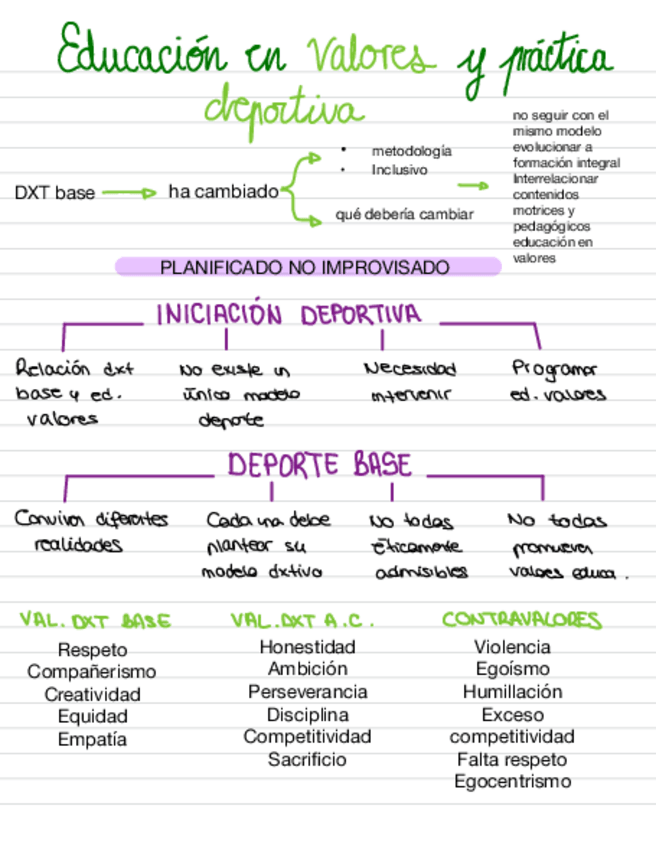 Educación en Valores y práctica
deportiva
DXT base
ha cambiado
• metodología
• Inclusivo
qué debería cambiar
no seguir con el
mismo modelo
evolucionar a
formación integral
Interrelacionar
contenidos
motrices y
pedagógicos
educación en
valores
PLANIFICADO NO IMPROVISADO
INICIACIÓN DEPORTIVA
Relación dxt
base y ed.
valores
No existe un
único modelo
deporte
Necesidad
intervenir
Programar
ed. valores
DEPORTE BASE
Conviven diferentes
realidades
Cada una debe
plantear su
modelo dxtivo
No todas
éticamente
admisibles
No todas
promueven
valores educa.
VAL. DXT BASE
Respeto
Compañerismo
Creatividad
Equidad
Empatía
VAL. DXT A.C.
Honestidad
Ambición
Perseverancia
Disciplina
Competitividad
Sacrificio
CONTRAVALORES
Violencia
Egoísmo
Humillación
Exceso
competitividad
Falta respeto
Egocentrismo